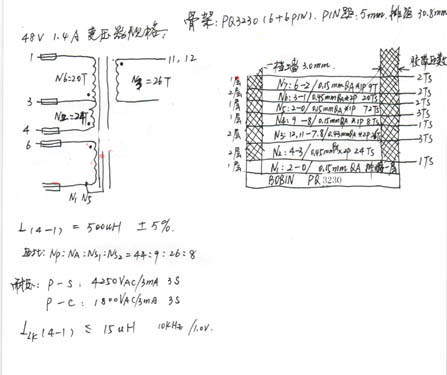 骨架: PQ3230 (6+6PIN). PIN距: 5mm, 排距 30.8mm
48V 1.4A 变压器规格.
1
N6=20T
3
N2=24T
4
6
N1 N5
11, 12
N3=26T
挡墙 3.0mm.
N7: 6-2 / 0.15mm QA×1P 9T
N6: 3-1 / 0.45mm QA×2P 20TS
N5: 2-0 / 0.15mm QA×1P 72TS
N4: 9-8 / 0.15mm QA×1P 8TS
N3: 12,11-7.8 /
N2: 4-3 / 24TS
N1: 2-0 / 0.15mm QA 一层
BOBIN PQ 3230
1层
2层
1层
1层
2层
2层
1层
2TS
2TS
2TS
3TS
1TS
3TS
1TS
L(4-1) = 500uH ±5%.
匝比: Np:NA:NS1:NS2=44:9:26:8
耐压: P-S: 4250VAC/3mA 3S
P-C: 1800VAC/3mA 3S
LLK(4-1) ≤ 15uH 10KHz/1.0V.